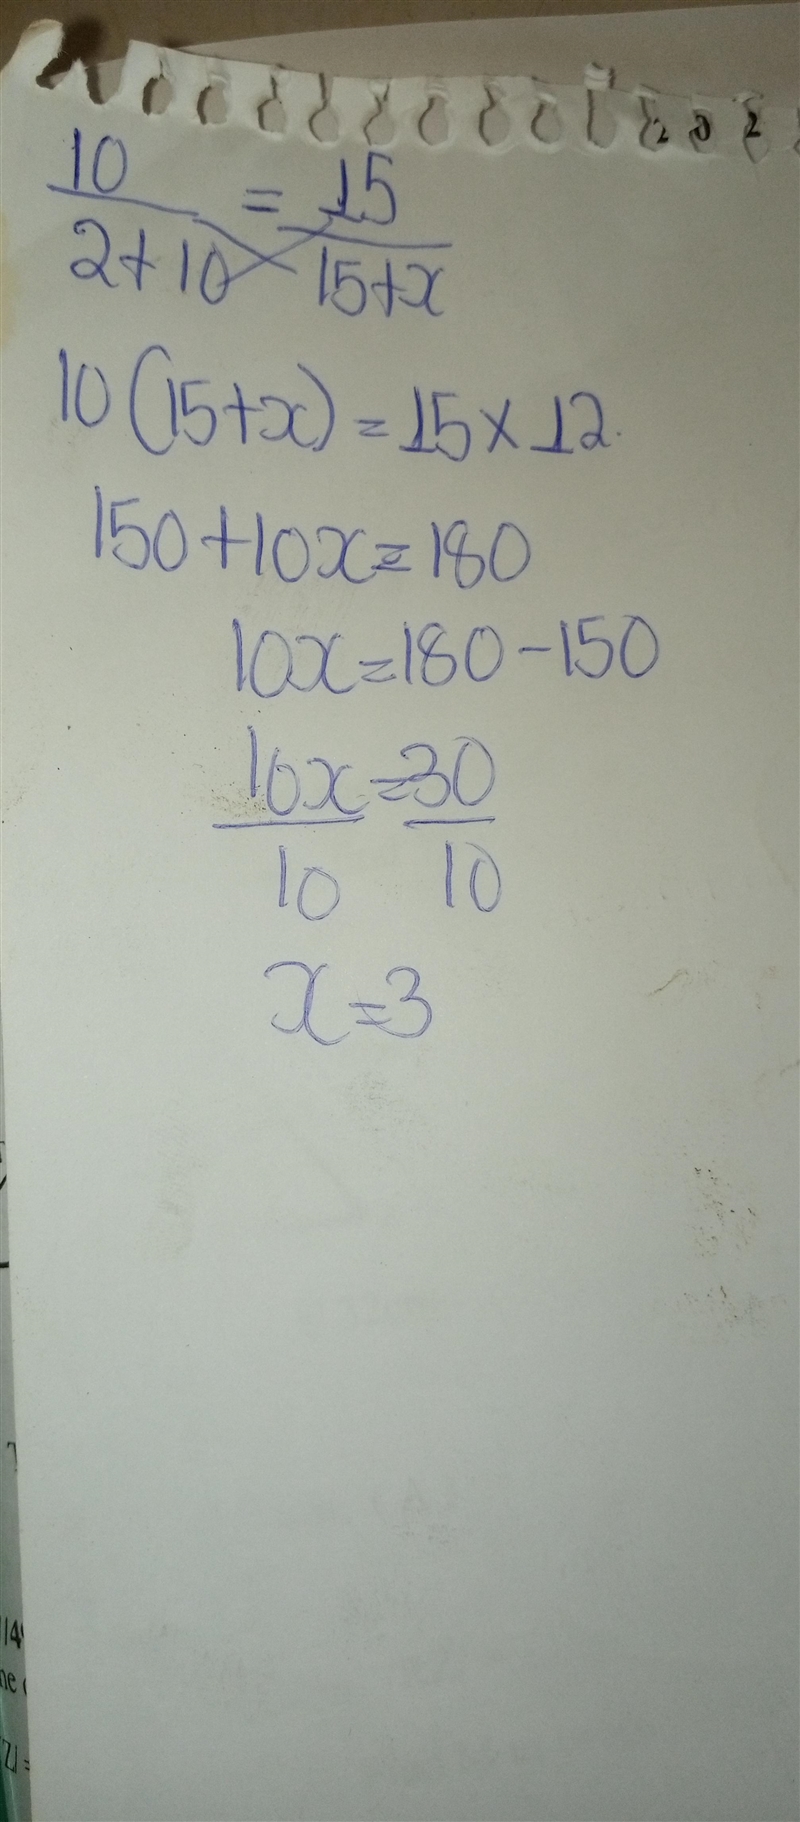 10/2+10 = 15/15+x
10(15+x)=15×12.
150+10x=180
10x=180-150
10x/10=30/10
x=3
2 0 2
114
ne